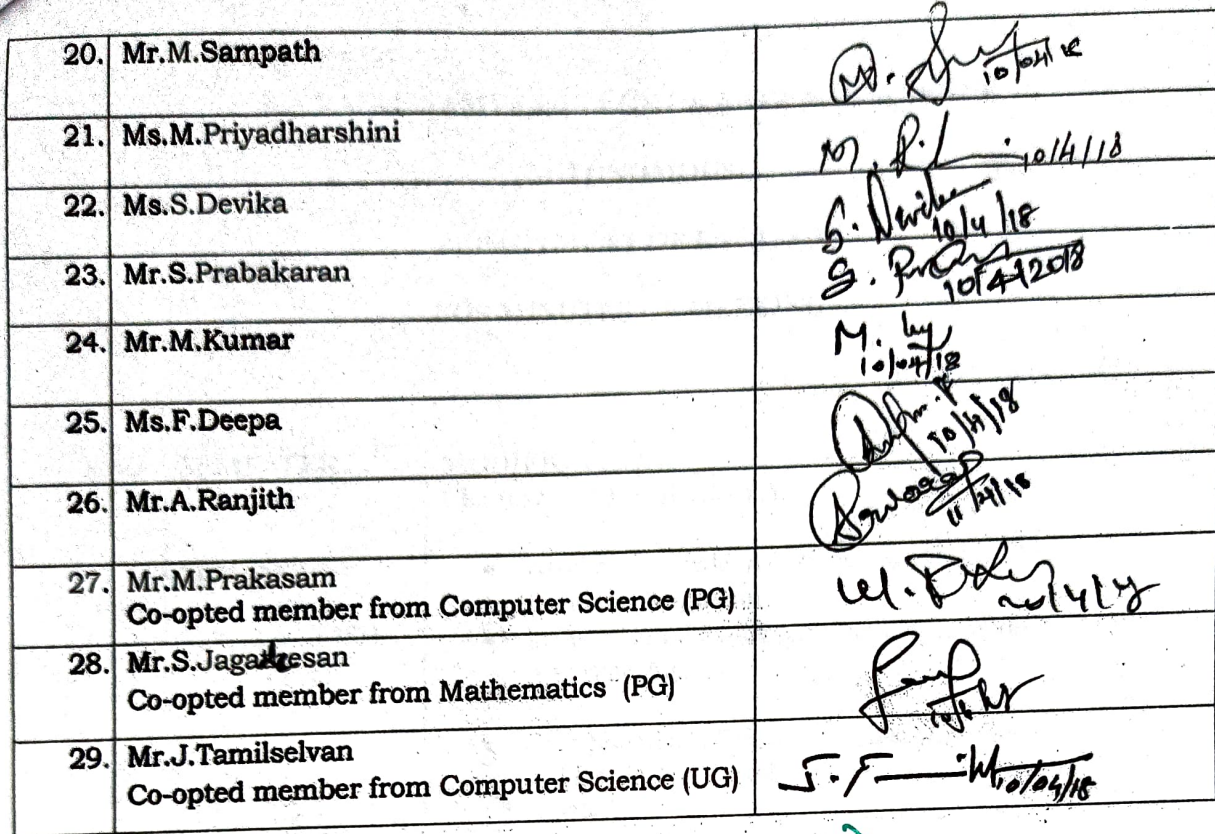 20. Mr.M.Sampath M. 10/04/18
21. Ms.M.Priyadharshini M. 10/4/18
22. Ms.S.Devika S. Devika 10/4/18
23. Mr.S.Prabakaran S. 10/4/2018
24. Mr.M.Kumar M. 10/04/18
25. Ms.F.Deepa 10/4/18
26. Mr.A.Ranjith 11/4/18
27. Mr.M.Prakasam M.
Co-opted member from Computer Science (PG)
28. Mr.S.
Co-opted member from Mathematics (PG)
29. Mr.J.Tamilselvan J. 10/04/18
Co-opted member from Computer Science (UG)